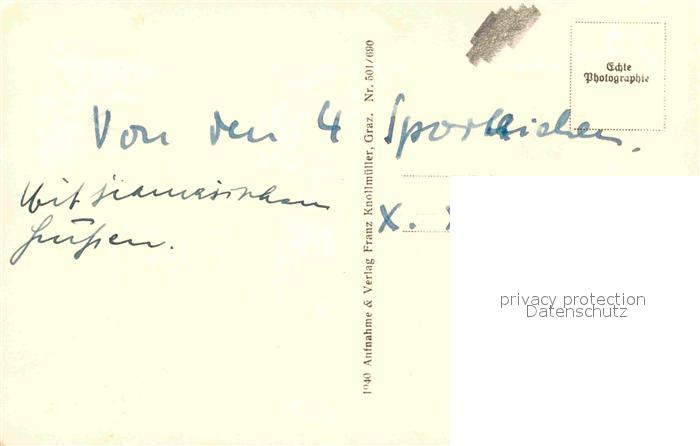 Echte
Photographie
Von den 4 Sportlichen.
Mit siamesischen
Grüßen.
X.
1940 Aufnahme & Verlag Franz Knollmüller, Graz. Nr. 501/690
privacy protection
Datenschutz